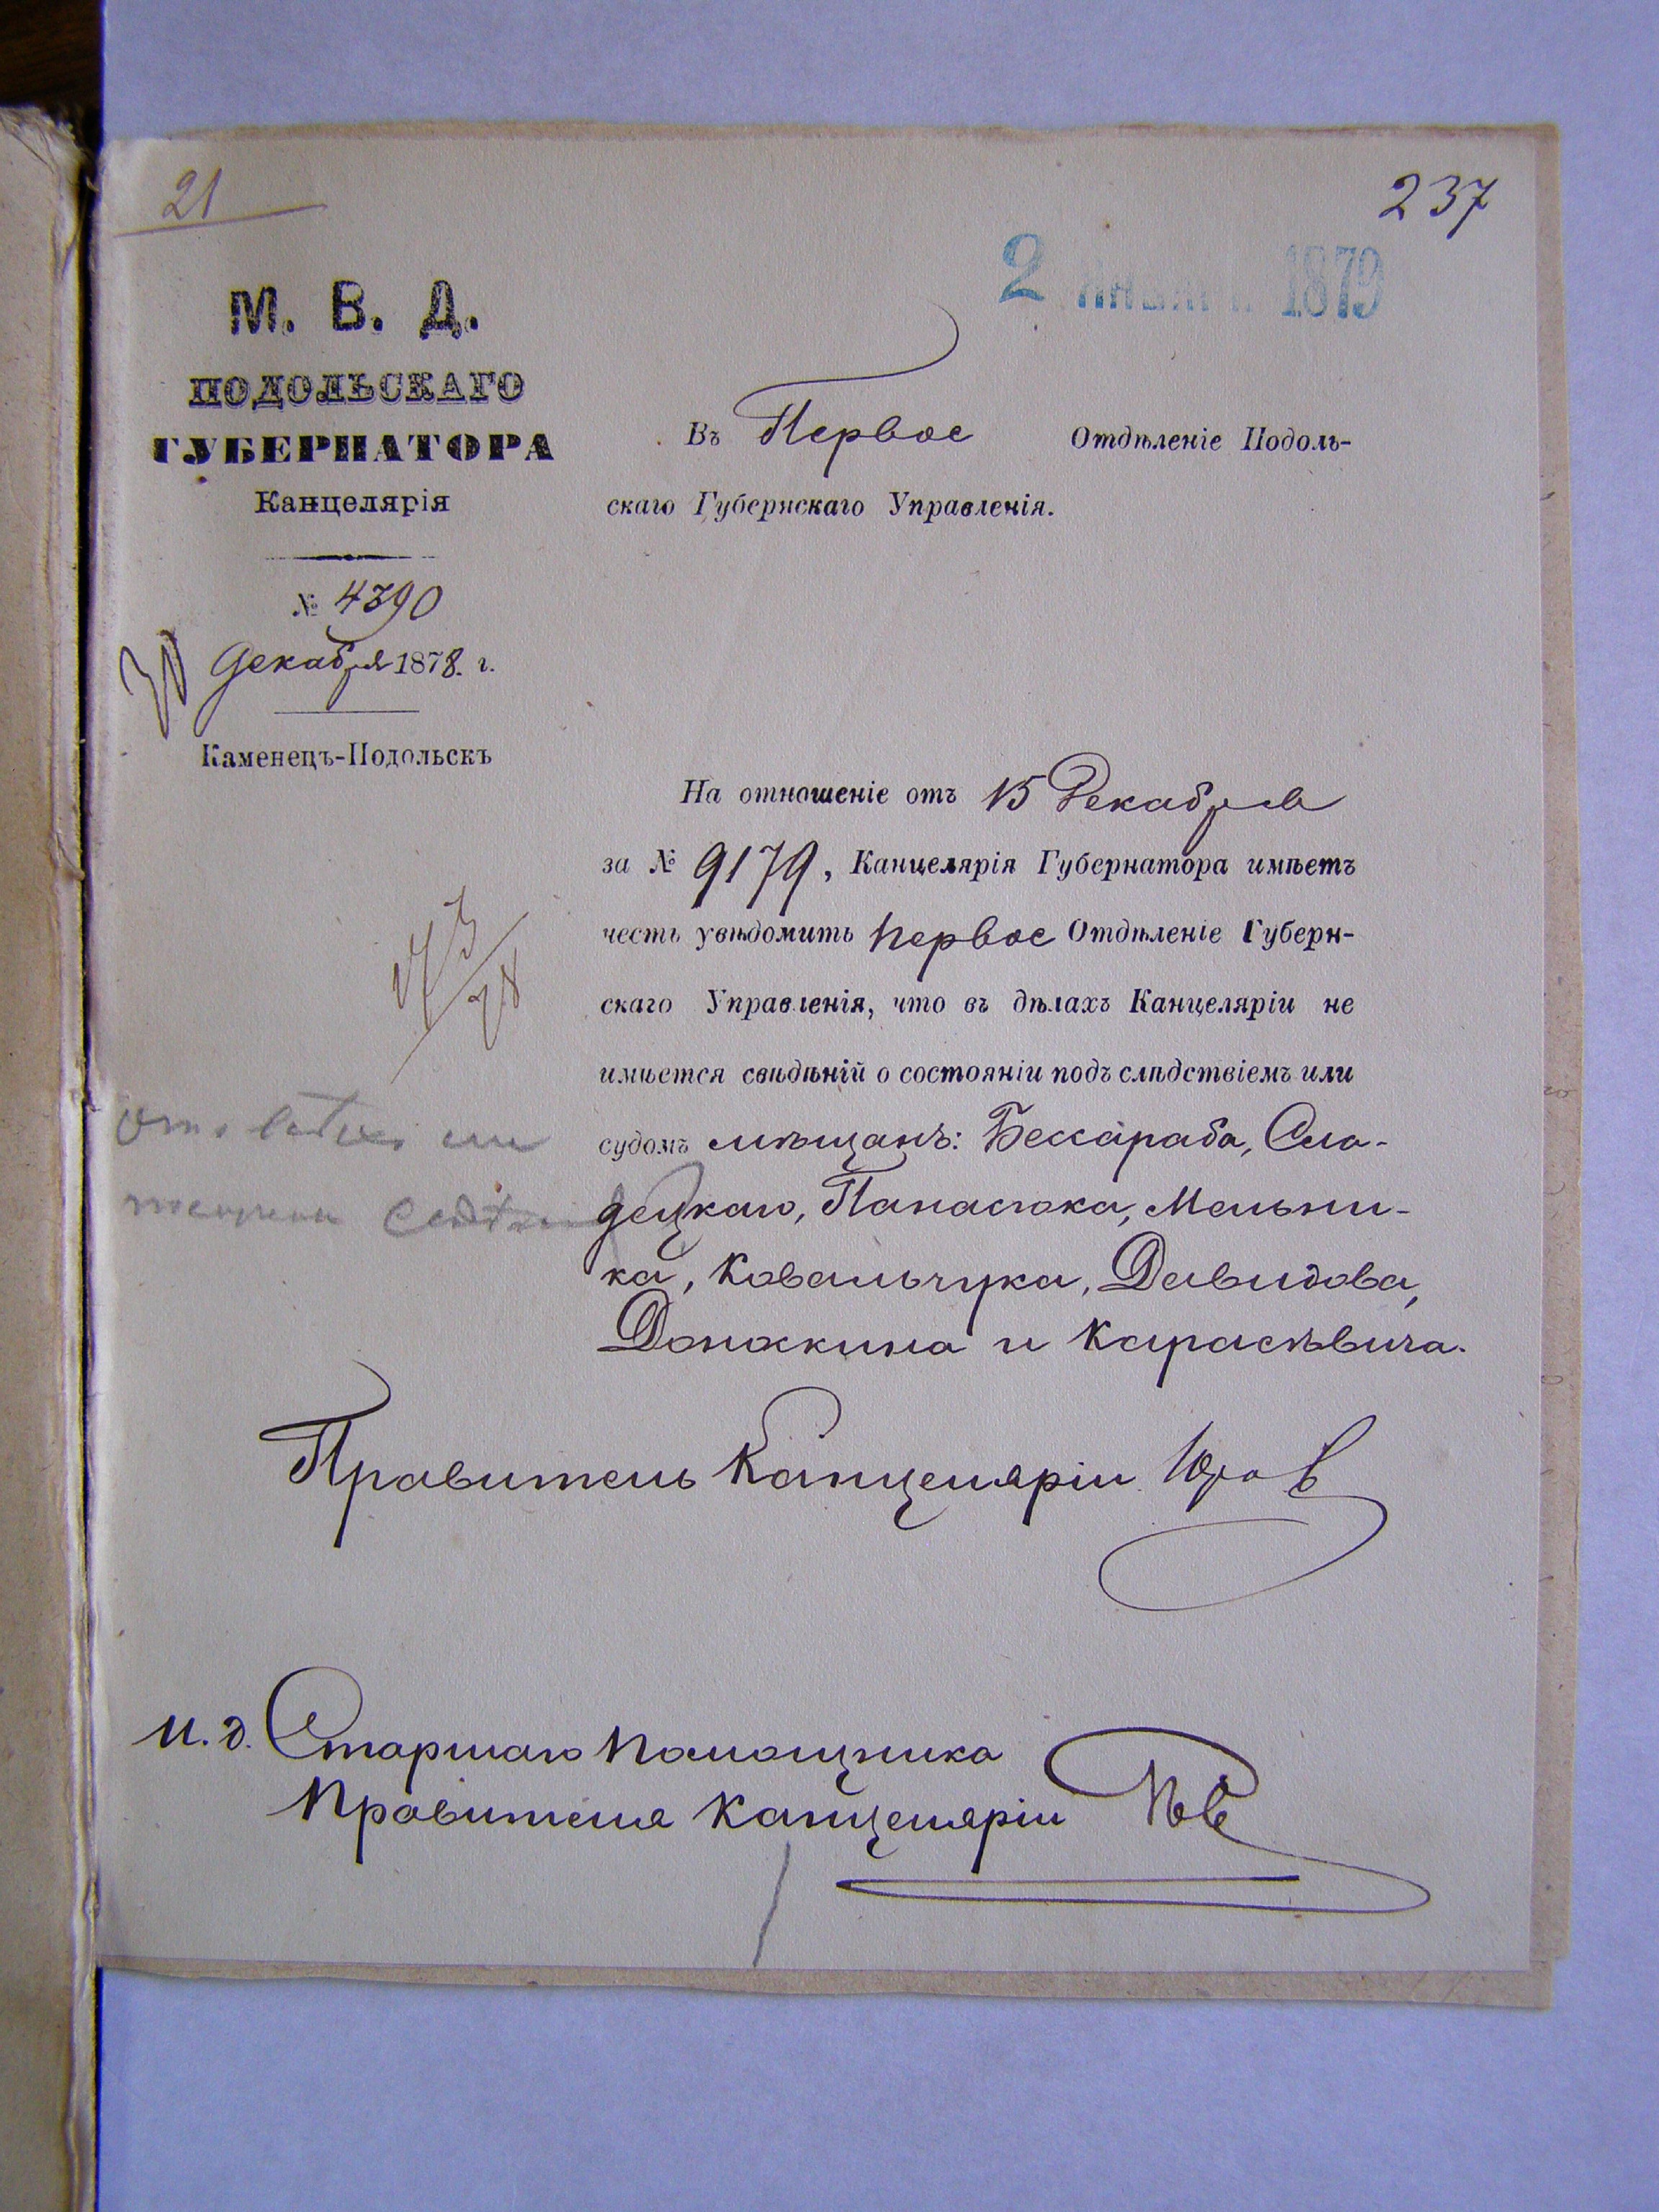 21
237
2 1879
М. В. Д.
ПОДОЛЬСКАГО
ГУБЕРНАТОРА
Канцелярія
№ 4390
30 Декабря 1878. г.
Каменецъ-Подольскъ
Въ Первое Отдѣленіе Подоль-
скаго Губернскаго Управленія.
На отношеніе отъ 15 Декабря
за № 9179, Канцелярія Губернатора имѣетъ
честь увѣдомить Первое Отдѣленіе Губерн-
скаго Управленія, что въ дѣлахъ Канцеляріи не
имѣется свѣдѣній о состояніи подъ слѣдствіемъ или
судомъ мѣщанъ: Бессараба, Сло-
децкаго, Панасюка, Мельни-
ка, Ковальчука, Давидова,
Донскина и Карасѣвича.
Правитель Канцеляріи
И. д. Старшаго Помощника
Правителя Канцеляріи